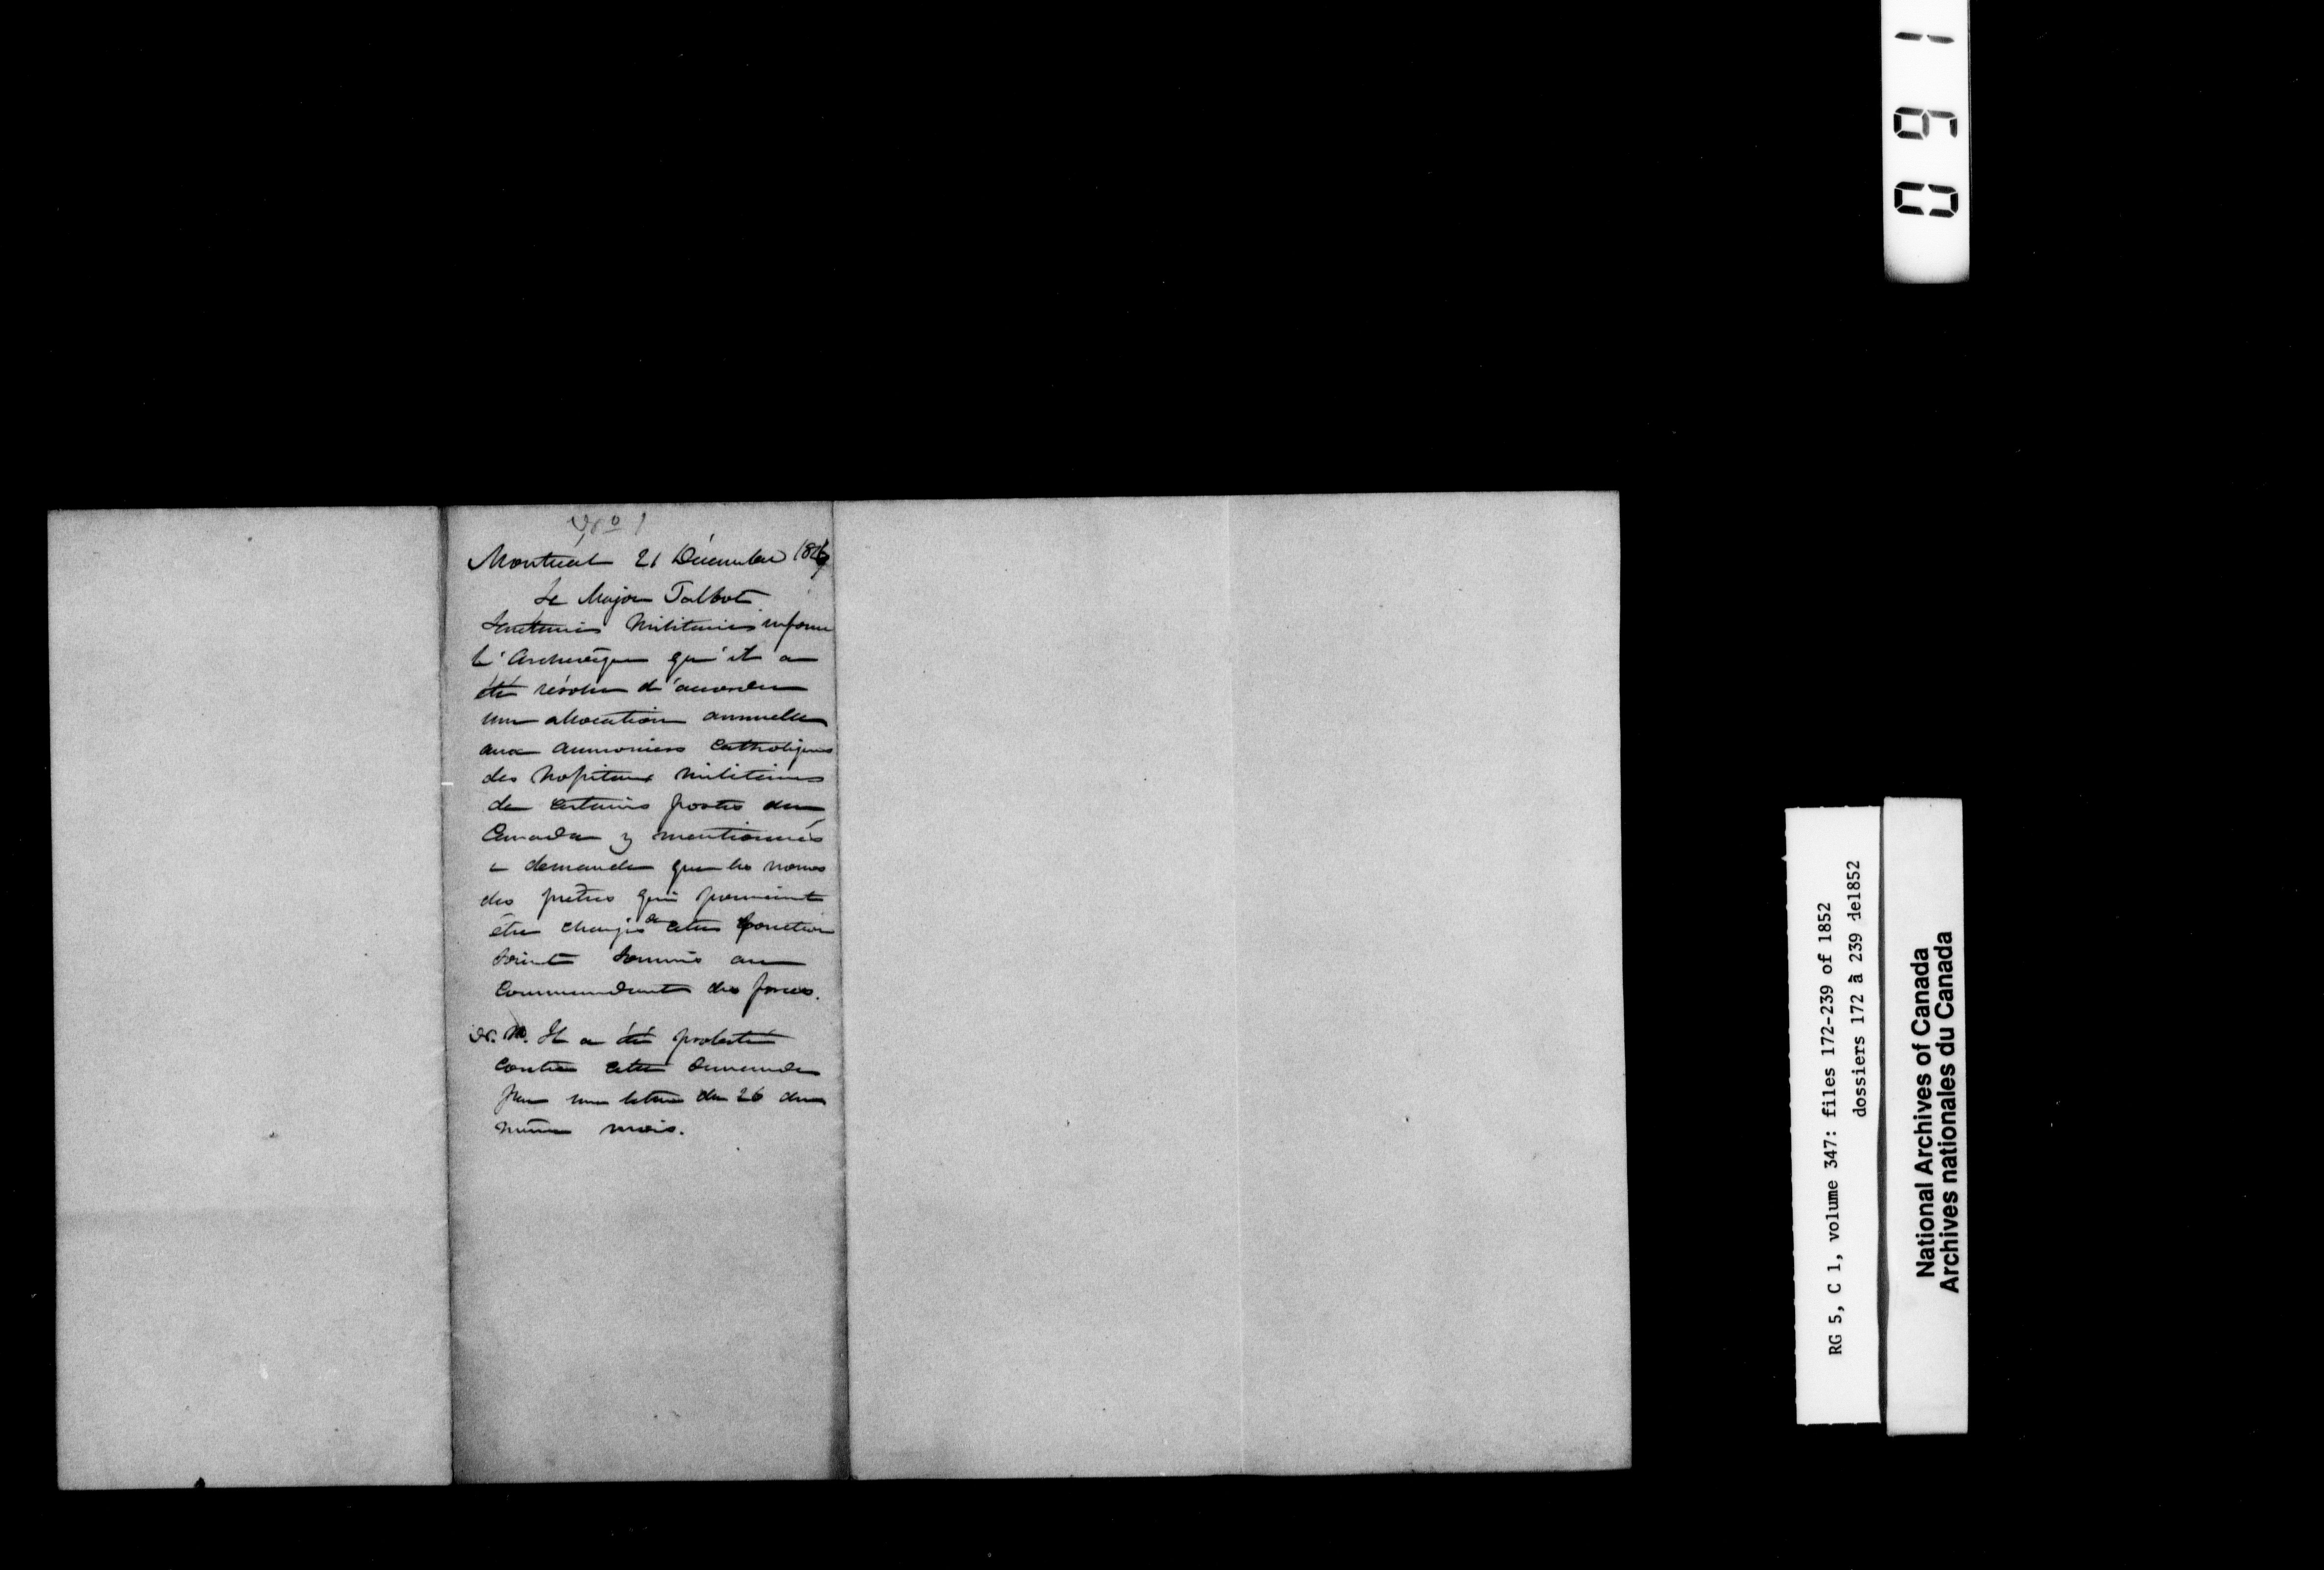 No 1
Montréal 21 Décembre
Le Major Talbot
Secrétaire Militaire informe
L'Archevêque qu'il a
été résolu d'accorder
une allocation annuelle
aux aumoniers Catholiques
des hopitaux militaires
de certains postes du
Canada y mentionnés
& demande que les noms
des prêtres qui pourraient
être chargés de cette fonction
soient soumis au
Commandant des forces.
N. B. Il a été protesté
contre cette demande
par une lettre du 26 du
même mois.
RG 5, C 1, volume 347: files 172-239 of 1852
dossiers 172 à 239 de1852
National Archives of Canada
Archives nationales du Canada